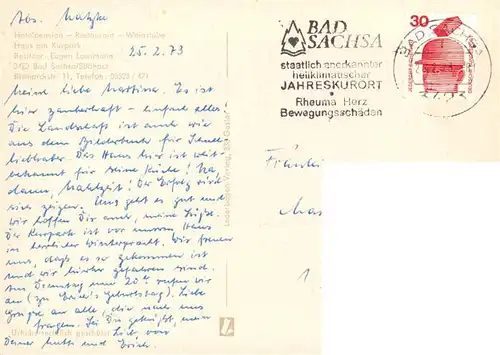 Abs. Matzke
Hotelpension - Restaurant - Weinstube
Haus am Kurpark
Besitzer: Eugen Lausmann
3423 Bad Sachsa/Südharz
Bismarckstr. 11, Telefon: 05523 / 471
25.2.73
Meine liebe Martina. Es ist
hier zauberhaft - einfach alles.
Die Landschaft ist auch wie
aus dem Bilderbuch für Schnee-
liebhaber. Das Haus hier ist weit-
bekannt für seine Küche! Na,
dann, Mahlzeit! Der Erfolg wird
sich zeigen. Uns geht es gut und
wir hoffen Dir auch, meine Süße.
Der Kurpark ist vor unserem Haus
in herrlicher Winterpracht. Wir freuen
uns, daß es so gekommen ist
und wir hierher gefahren sind.
Am Dienstag um 20 rufen wir
an (zu Erich's Geburtstag). Liebe
Grüße an alle, die nach uns
fragen. Sei Du geküßt, mein
Urheberrechtlich geschützt
Lieb, von
Deiner Mutti und Erich.
BAD
SACHSA
staatlich anerkannter
heilklimatischer
JAHRESKURORT
Rheuma Herz
Bewegungsschäden
30
BAD SACHSA
Fräulei
Mar
1